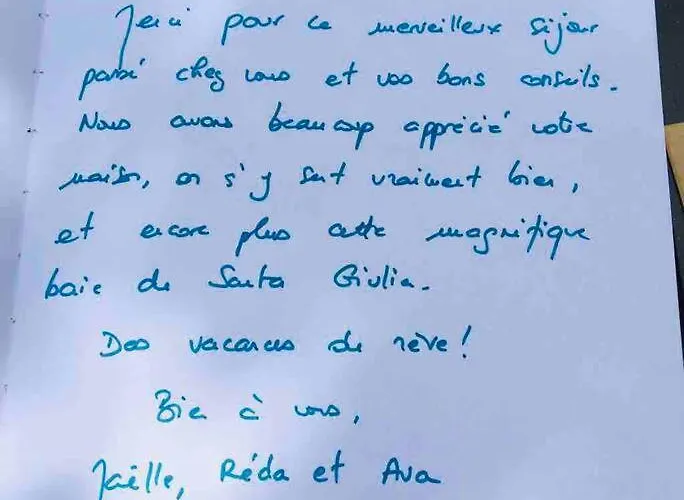 Merci pour ce merveilleux séjour
passé chez vous et vos bons conseils.
Nous avons beaucoup apprécié votre
maison, on s'y sent vraiment bien,
et encore plus cette magnifique
baie de Santa Giulia.
Des vacances de rêve !
Bien à vous,
Réda et Ava